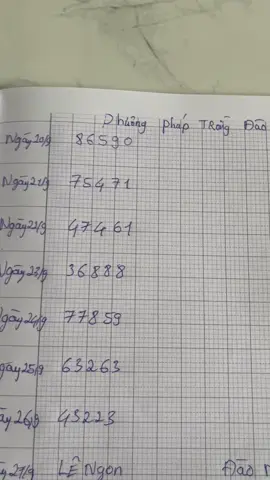 Phương pháp TRồng Đào
Ngày 20/9 86590
Ngày 21/9 75471
Ngày 22/9 47461
Ngày 23/9 36888
Ngày 24/9 77859
gày 25/9 63263
ày 26/9 43223
y 27/9 LÊ Ngon Đào